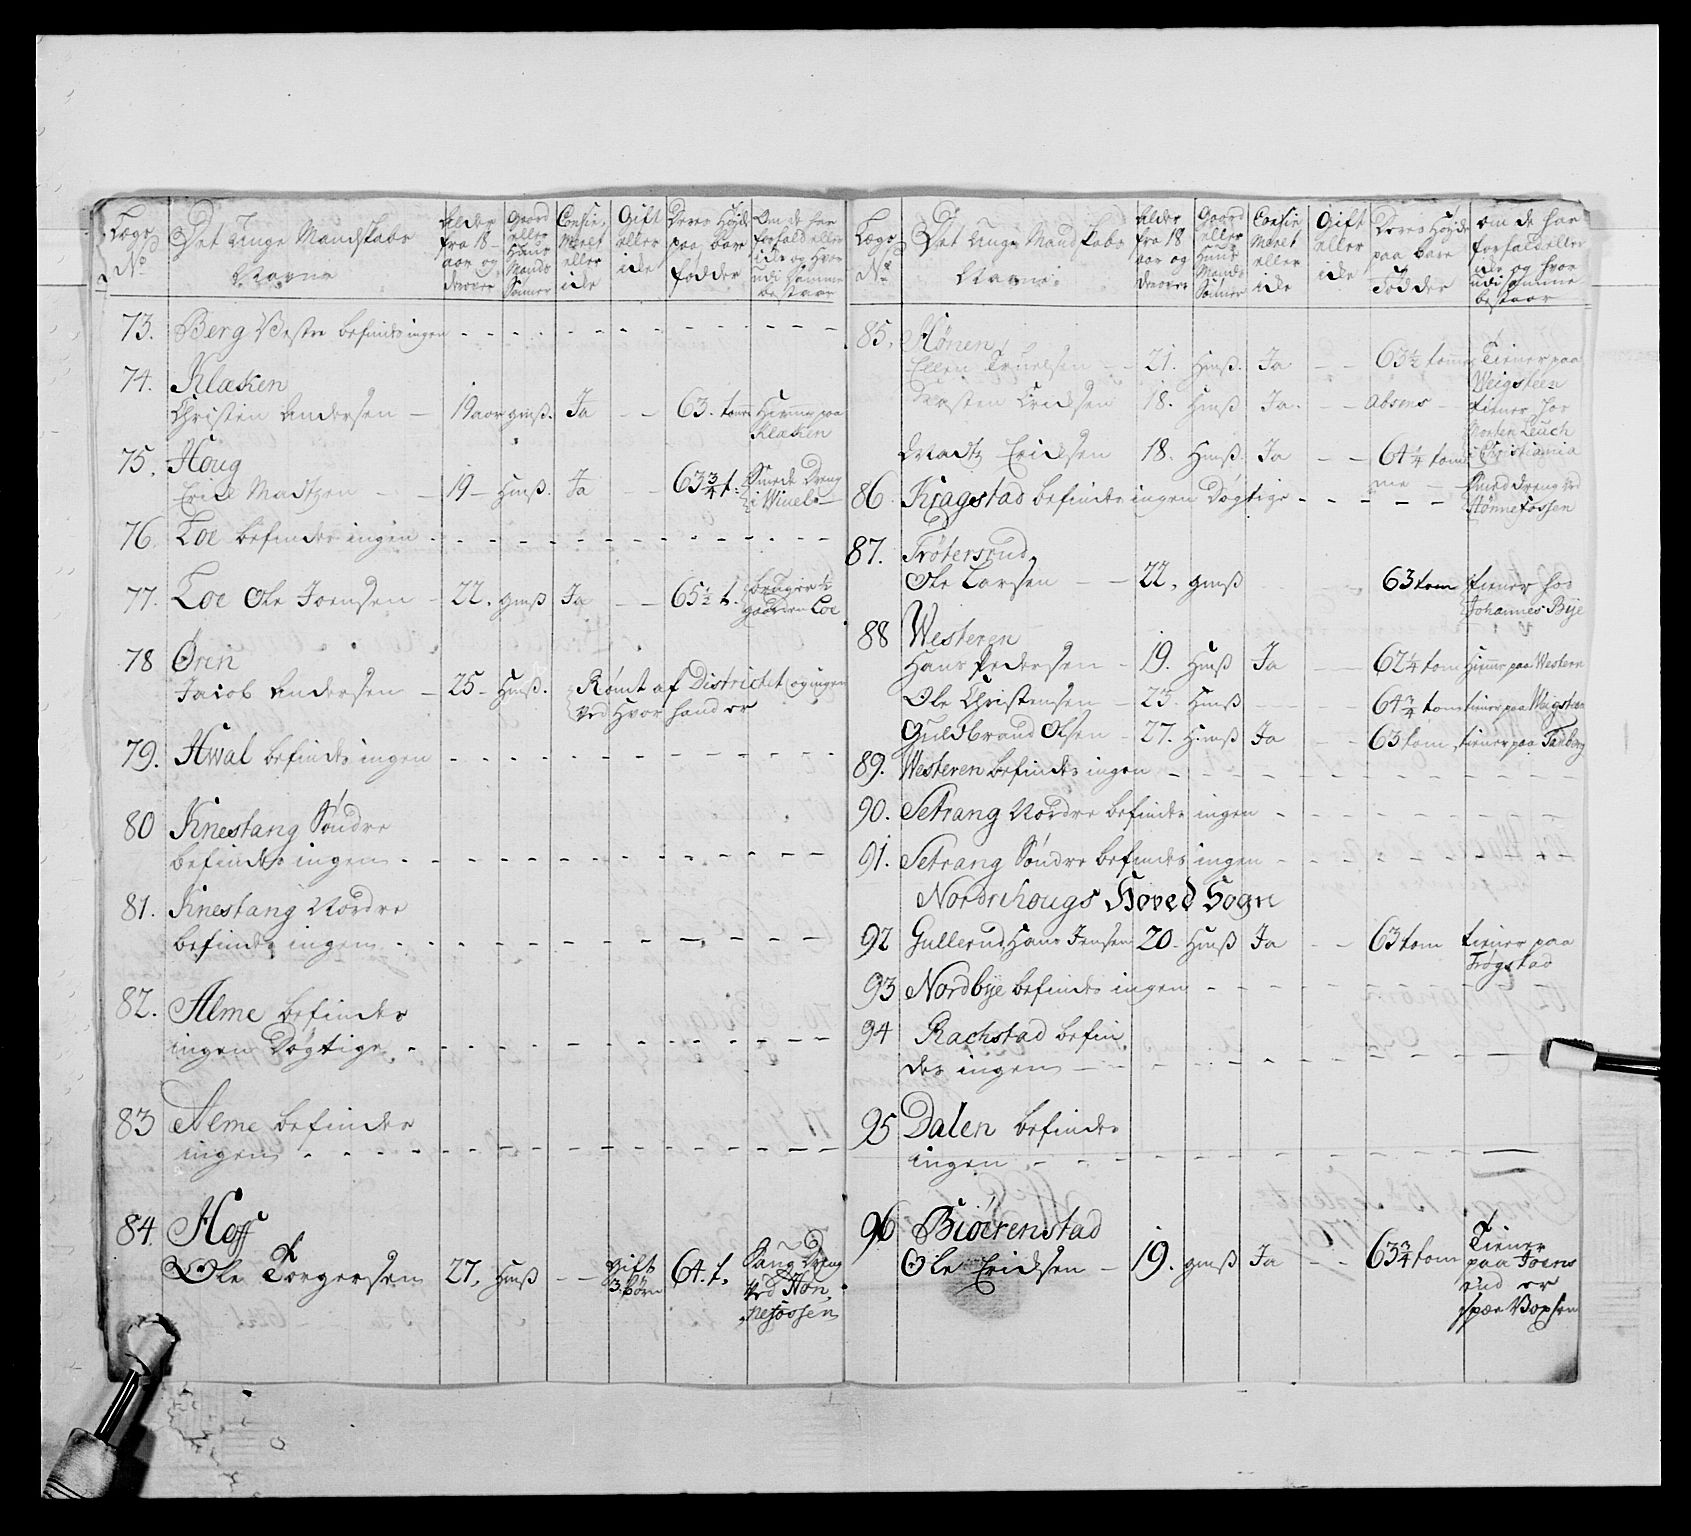 Lægs No
Det Unge Mandskabs Navne
Alder fra 18 aar og derover
Gaard eller Huus Mands Sønner
Confirmeret eller icke
Gift eller icke
Deres Højde paa bare fødder
Om de har forfald eller icke og hvor udi samme bestaar
73. Berg Vestre befindes ingen
74. Klæken
Christen Andersen - 19 aar gmß. Ja - - 63. tomr Hiemme paa
Klæken
75. Houg
Erich Madtzen - - 19 - Hmß. Ja - 63 3/4 t. Smede Dreng
i Viuel
76. Loe befindes ingen
77. Loe Ole Joensen - 22. gmß Ja - - 65 1/2 t. bruger
gaarden Loe
78 Øren
Jacob Andersen - 25 - Hmß. Rømt af Districtet og ingen
ved Hvor hand er
79. Hwal befindes ingen
80 Knestang Søndre
befindes ingen
81. Knestang Nordre
befindes ingen
82. Alme befindes
ingen Døgtige
83 Alme befindes
ingen
84. Hoff
Ole Torgersen 27. Hmß - - gift 3 børn 64. t. Saug Dreng
ved Høn
nefossen
Lægs No
Det Unge Mandskabs Navne
Alder fra 18 aar og derover
Gaard eller Huus Mands Sønner
Confirmeret eller icke
Gift eller icke
Deres Højde paa bare Fødder
om de har forfald eller icke og hvor udi samme bestaar
85. Hønen
Ellen Truelsen - 21. Hmß. Ja - - 63 1/2 tommer Tiener paa
Weigsteen
Karsten Erichsen 18. Hmß Ja. - - absens tiener hos
Morten Leuch
i Christiania
Madtz Erichsen 18. Hmß. Ja - - 64 1/4 tom
me Smed dreng ved
Hønnefossen
86. Kragstad befindes ingen Døgtige
87. Trøtersrud
Ole Larsen - - 22. gmß 63 tom tiener hos
Johannes Bye
88 Westeren
Hans Pedersen - 19. Hmß Ja - - 62 1/4 tom Hiemme paa Western
Ole Christensen - 23. Hmß - - 64 3/4 tom tiener paa Weigsteen
Guldbrand Olsen - 27. Hmß Ja - - 63 tom tiener paa Tanberg
89. Westeren befindes ingen
90. Setrang Nordre befindes ingen
91. Setrang Søndre befindes ingen
Nordrehougs Hoved Sogn
92 Gullerud Hans Jensen 20 - Hmß Ja - - 63 tom tiener paa
Frøgstad
93 Nordbye befindes ingen
94 Rachstad befin
des ingen
95 Dalen befindes
ingen
96 Biørenstad
Ole Erichsen - 19. gmß Ja - - 63 3/4 tom Tiener
paa Joens
rud er